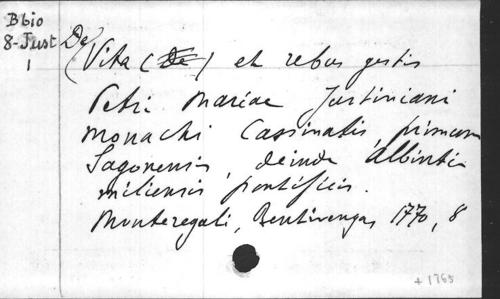 Bbio
8-Just
1
(De) Vita (De) et rebus gestis
Petri Mariae Justiniani
monachi Casinatis, primum
Sagonensis, deinde Albinti-
miliensis pontificis.
Monteregali, Bentivenga, 1770, 8
+ 1765